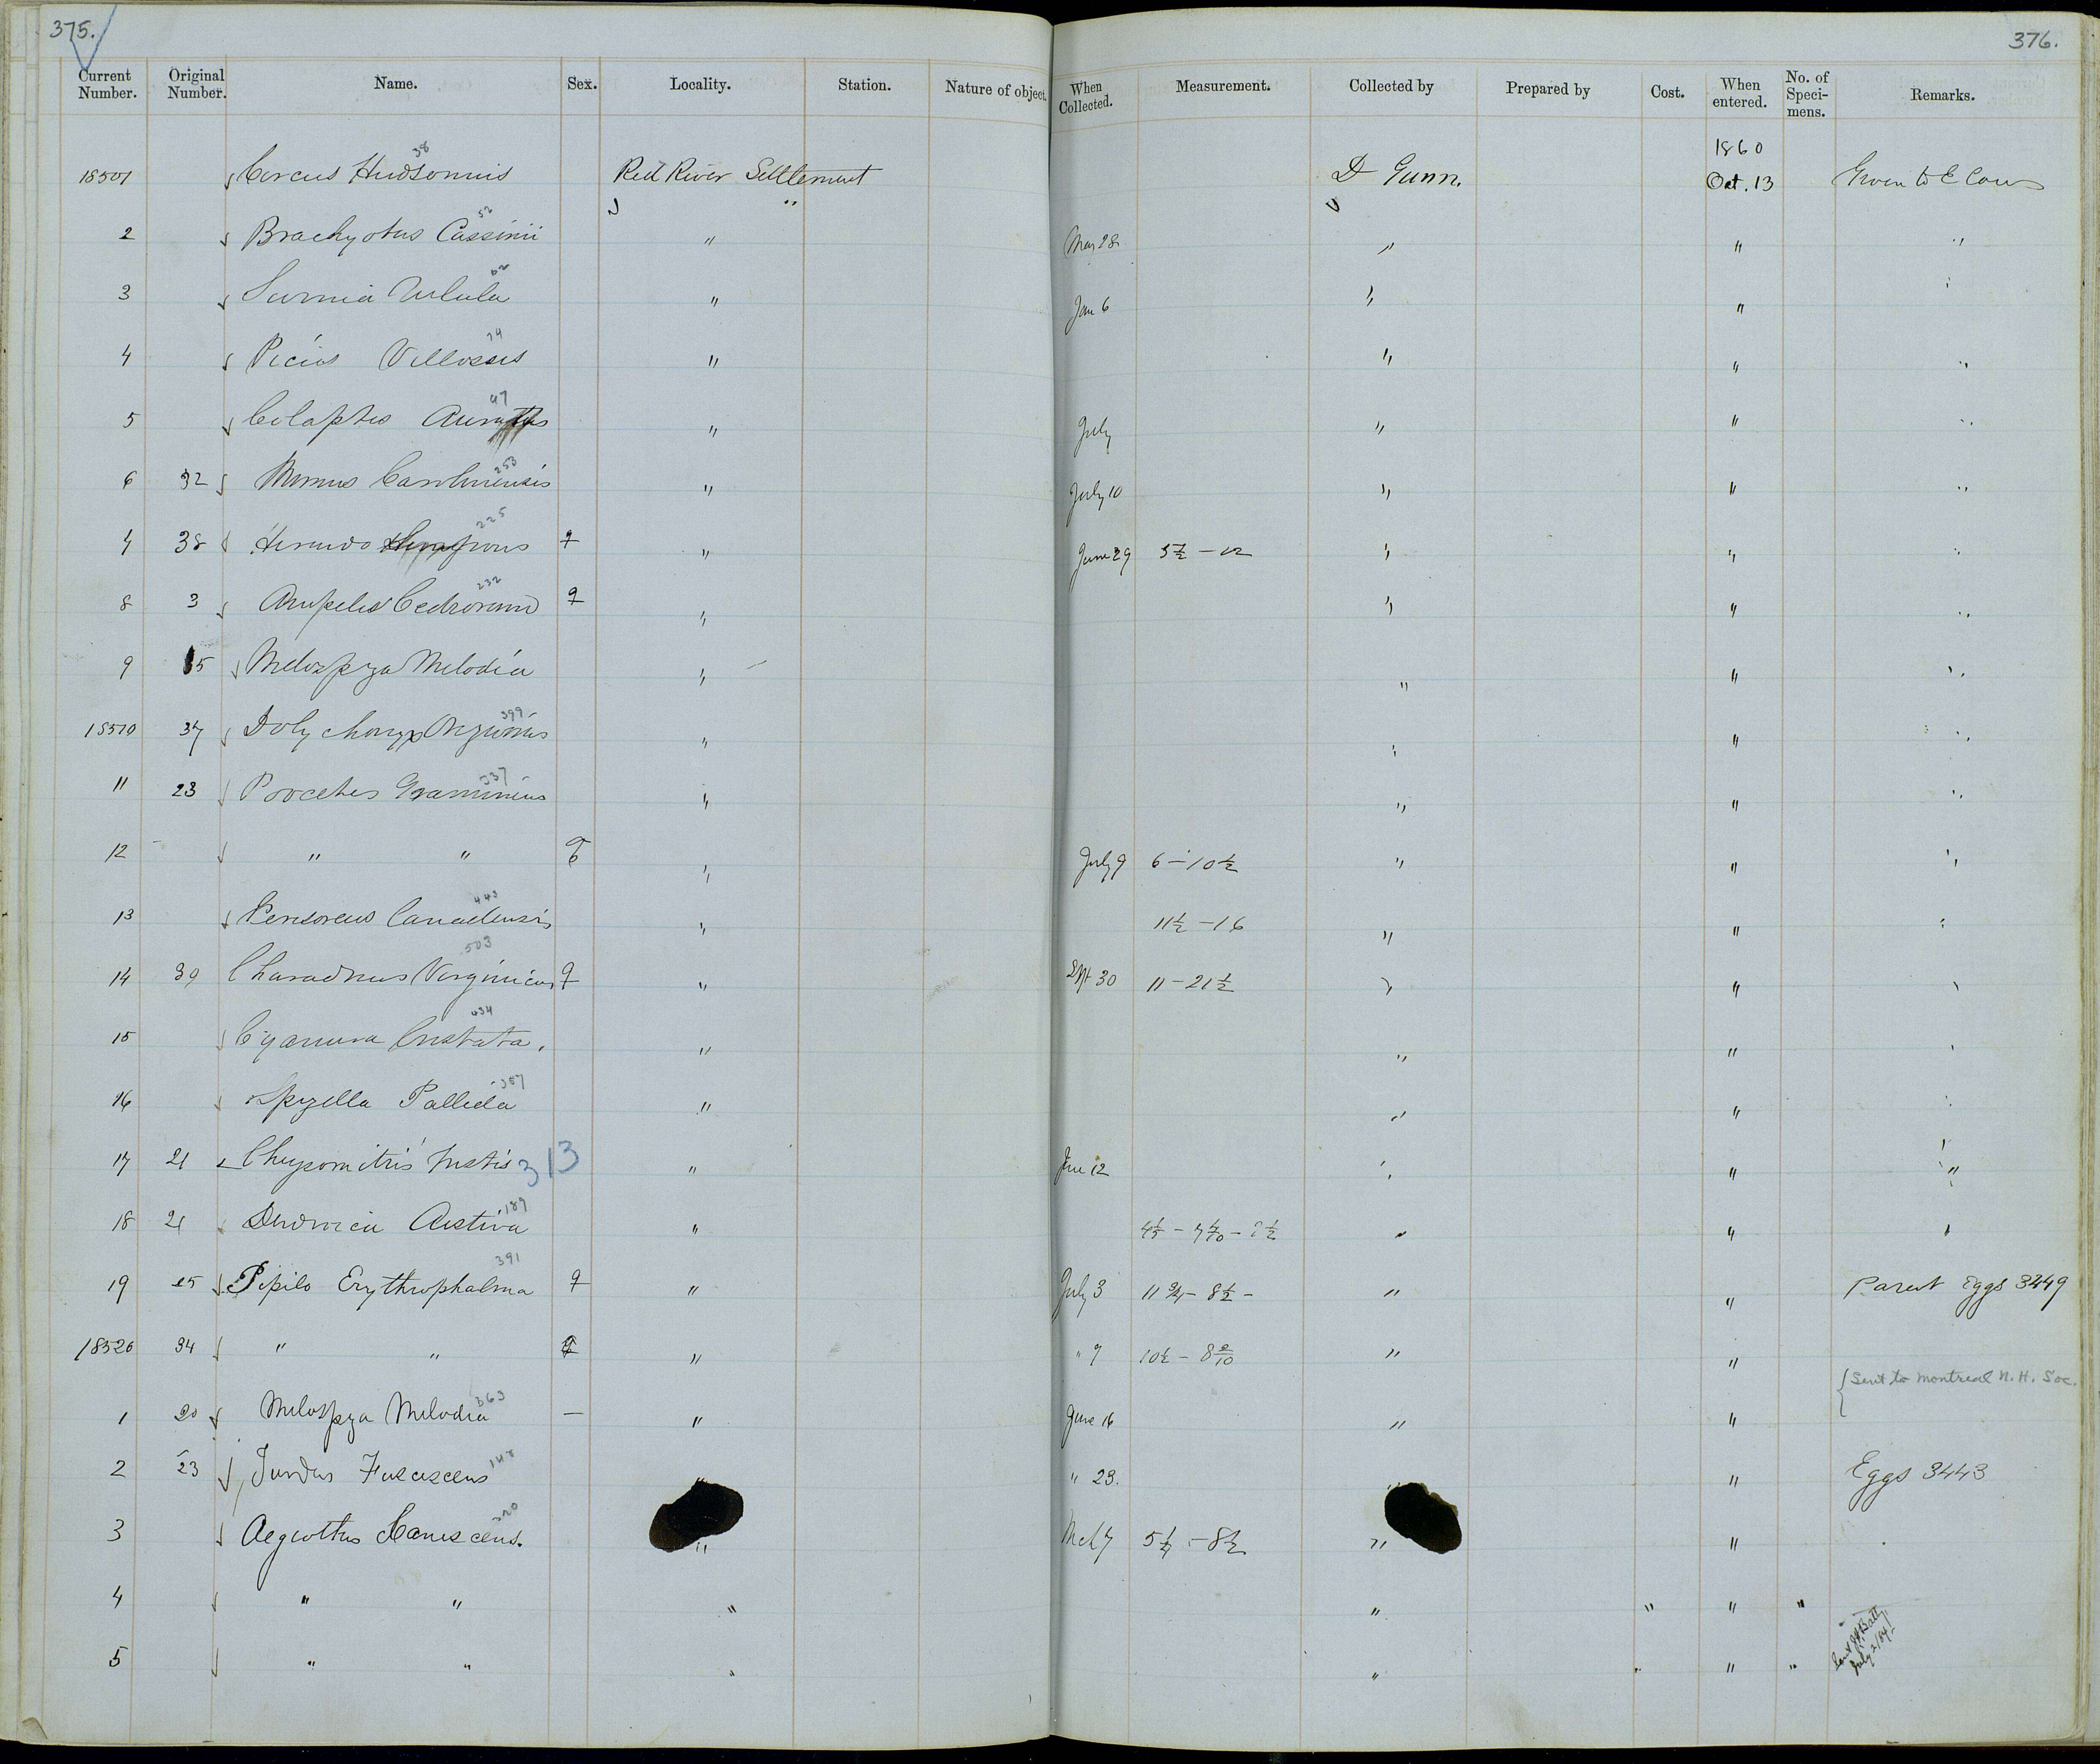 375.
376.
Current Number. Original Number. Name. Sex. Locality. Station. Nature of object. When Collected. Measurement. Collected by Prepared by Cost. When entered. No. of Specimens. Remarks.
1860
38
18501 Circus Hudsonius Red River Settlement D Gunn. Oct. 13 Given to E Coues
"
52
2 Brachyotus Cassinii " May 28 " " "
62
3 Surnia Ulula " Jan 6 " " "
74
4 Picus Villosus " " " "
97
5 Colaptes Auratus " July " " "
253
6 32 Mimus Carolinensis " July 10 " " "
225
7 38 Hirundo lunifrons ♀ " June 29 5½ - 12 " " "
232
8 3 Ampelis Cedrorum ♀ " " " "
9 15 Melospza Melodia " " " "
399
18510 37 Dolychonyx Oryzivorus " " " "
337
11 23 Poocetes Gramineus " " " "
12 " " " July 9 6 - 10½ " " "
443
13 Perisoreus Canadensis " 11½ - 16 " " "
503
14 39 Charadrius Virginicus ♀ " Sept 30 11 - 21½ " " "
434
15 Cyanura Cristata. " " " "
357
16 Spyzella Pallida " " " "
17 21 Chrysomitris tristis 313 " June 12 " " "
189
18 21 Dendroica Aestiva " " " "
391
19 25 Pipilo Erythrophalma ♀ " July 3 11¾ - 8½ - " " Parent Eggs 3449
18520 34 " " " " 9 10½ - 8 9/10 " "
{ Sent to Montreal N. H. Soc.
363
1 20 Melospza Melodia — " June 16 " "
148
2 23 Turdus Fuscescens " " 23. " " Eggs 3443
320
3 Aegiothus Canescens. " Mch 7 5¼ - 8½ " "
4 " " " " " " "
5 " " " " " " " Sent
July 2/84